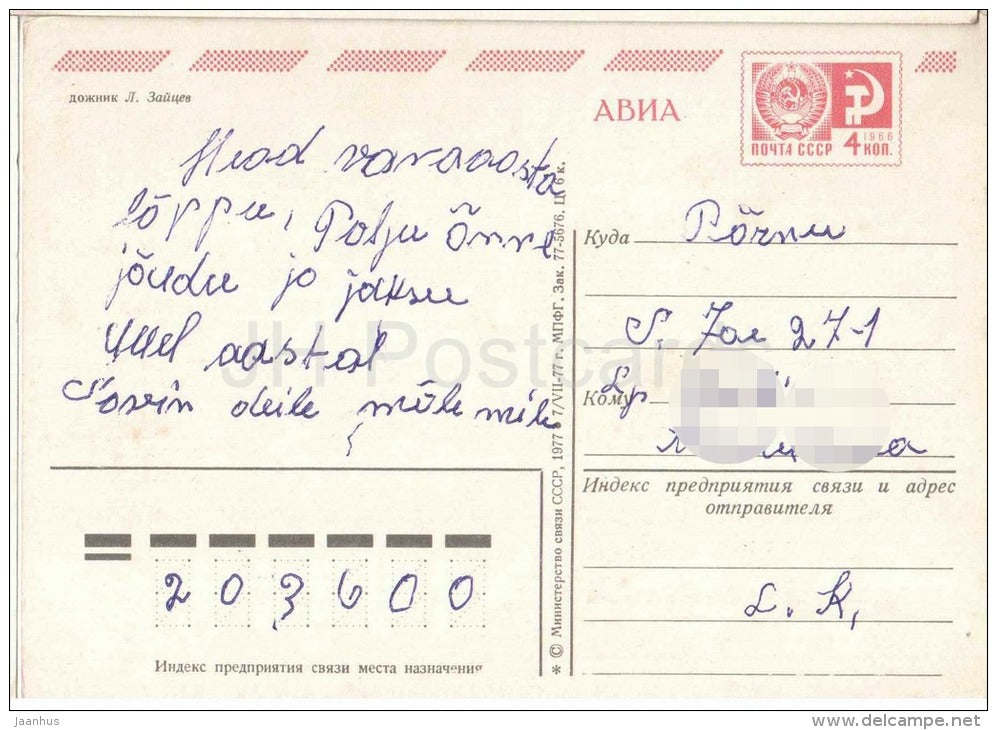 дожник Л. Зайцев
АВИА
1966
ПОЧТА СССР 4 КОП.
Head vanaaasta
lõppu, Palju Õnne
jõudu ja jaksu
Uuel aastal
Soovin teile
Куда Pärnu
S. 27-1
Кому Lp
Индекс предприятия связи и адрес
отправителя
L. K,
203600
Индекс предприятия связи места назначения
* © Министерство связи СССР, 1977 7/VII-77 г. МПФГ. Зак. 77-5676. Ц. 6 к.
JH Postcard
jaanhus
www.delcampe.net